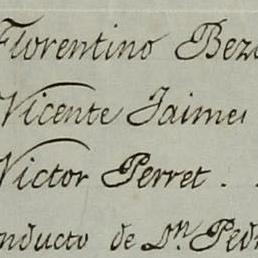 Florentino Beza
Vicente Jaime
Victor Perret . .
onducto de Dn Pedr